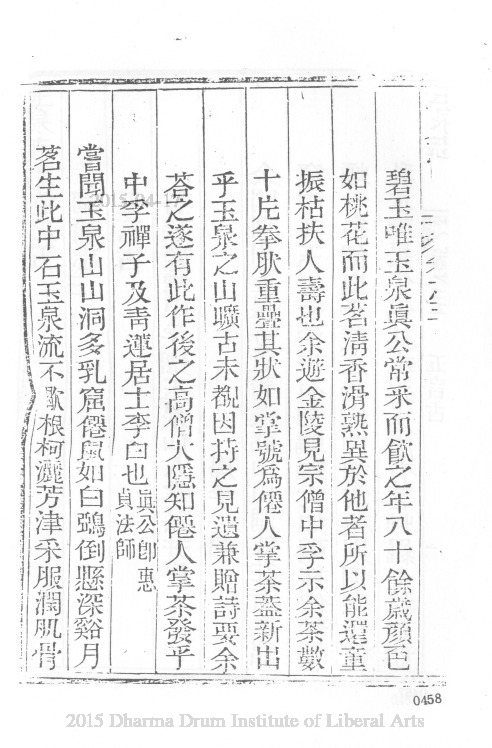 碧玉唯玉泉眞公常采而飮之年八十餘歲顏色
如桃花而此茗淸香滑熟異於他者所以能還童
振枯扶人壽也余遊金陵見宗僧中孚示余茶數
十片拳肰重疊其狀如掌號爲僊人掌茶蓋新出
乎玉泉之山曠古未覩因持之見遺兼贈詩要余
荅之遂有此作後之高僧大隱知僊人掌茶發乎
中孚禪子及靑蓮居士李白也眞公卽惠
貞法師
嘗聞玉泉山山洞多乳窟僊鼠如白鵶倒懸深谿月
茗生此中石玉泉流不歇根柯灑芳津采服潤肌骨
0458
2015 Dharma Drum Institute of Liberal Arts